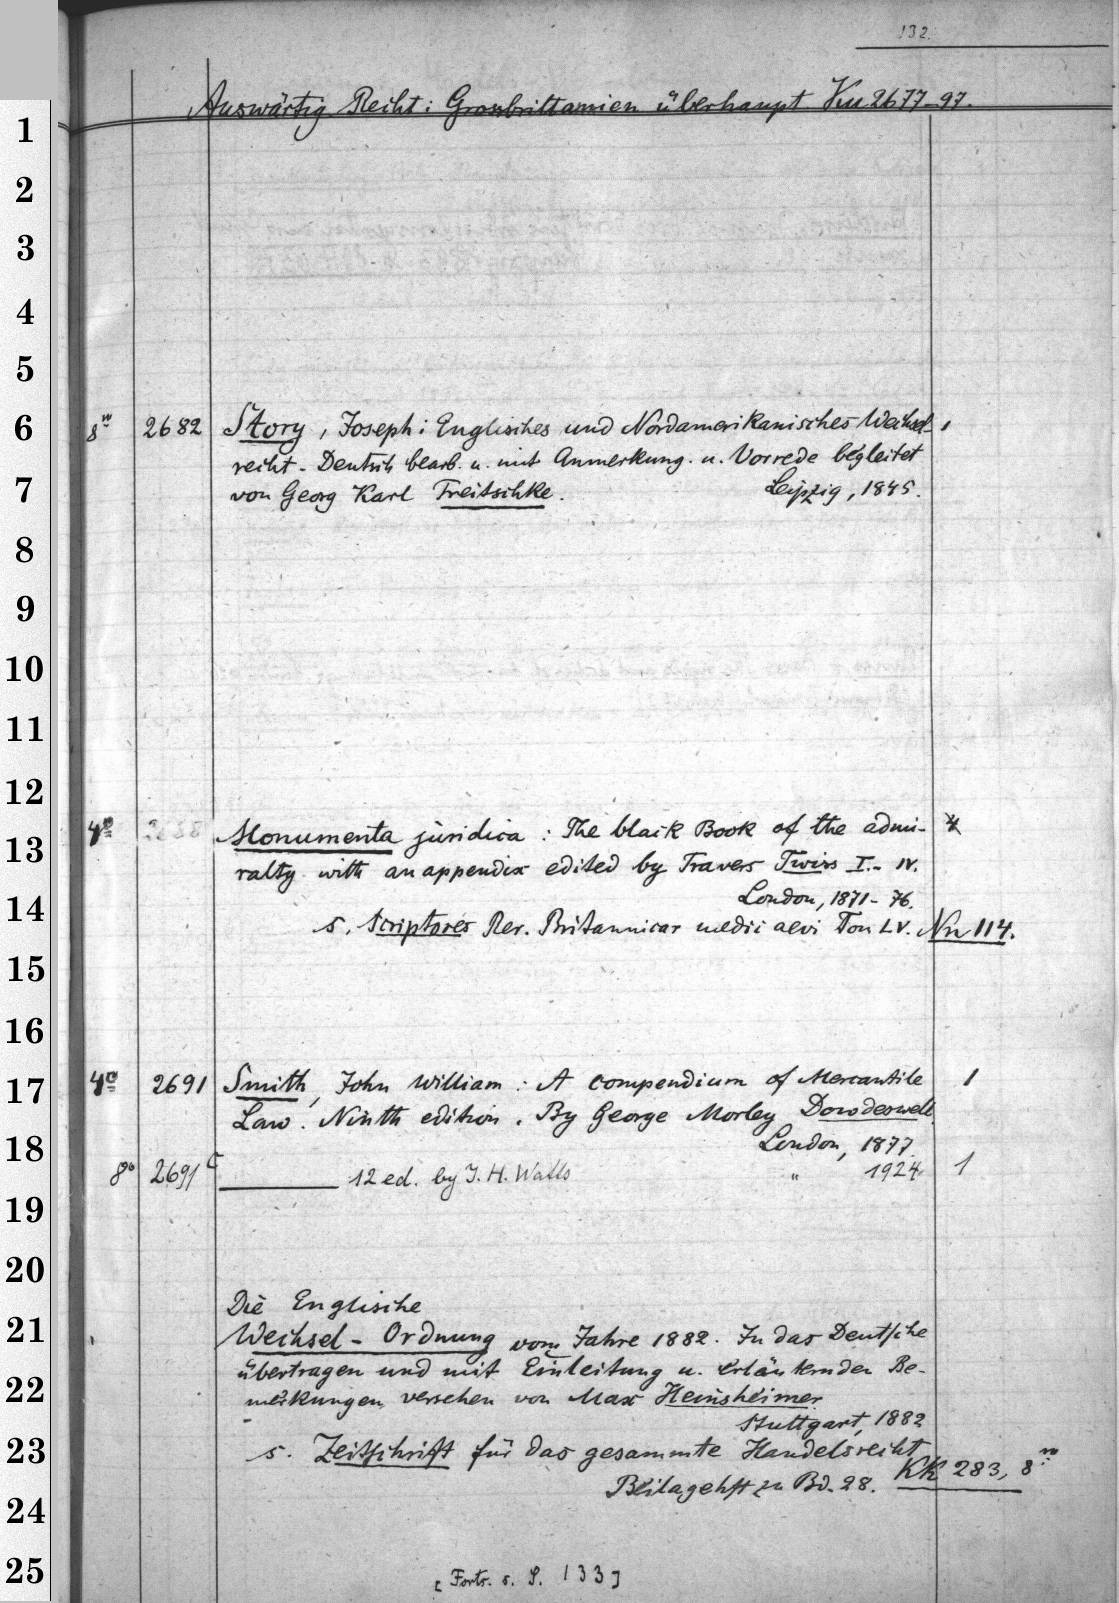 132.
Auswärtig. Recht: Grossbrittannien überhaupt Ku 2677-97.
1
2
3
4
5
6
8° 2682 Story, Joseph: Englisches und Nordamerikanisches Wechsel- 1
recht. Deutsch bearb. u. mit Anmerkung. u. Vorrede begleitet
7
von Georg Karl Treitschke. Leipzig, 1845.
8
9
10
11
12
4° Monumenta juridica: The black Book of the admi-
13
ralty with an appendix edited by Travers Twiss I.- IV.
London, 1871-76.
14
s. Scriptores Rer. Britannicar medii aevi Tom LV. Nn 114.
15
16
17
4° 2691 Smith, John William: A compendium of Mercantile 1
Law. Ninth edition. By George Morley Dowdeswell.
18
London, 1877.
8° 2691 c ——— 12 ed. by J. H. Watts " 1924 1
19
20
Die Englische
21
Wechsel-Ordnung vom Jahre 1882. In das Deutsche
übertragen und mit Einleitung u. erläuternden Be-
22
merkungen versehen von Max Heinsheimer.
Stuttgart, 1882
23
s. Zeitschrift für das gesammte Handelsrecht
Beilageheft zu Bd. 28. KK 283, 8°
24
25
[Forts. s. S. 133]